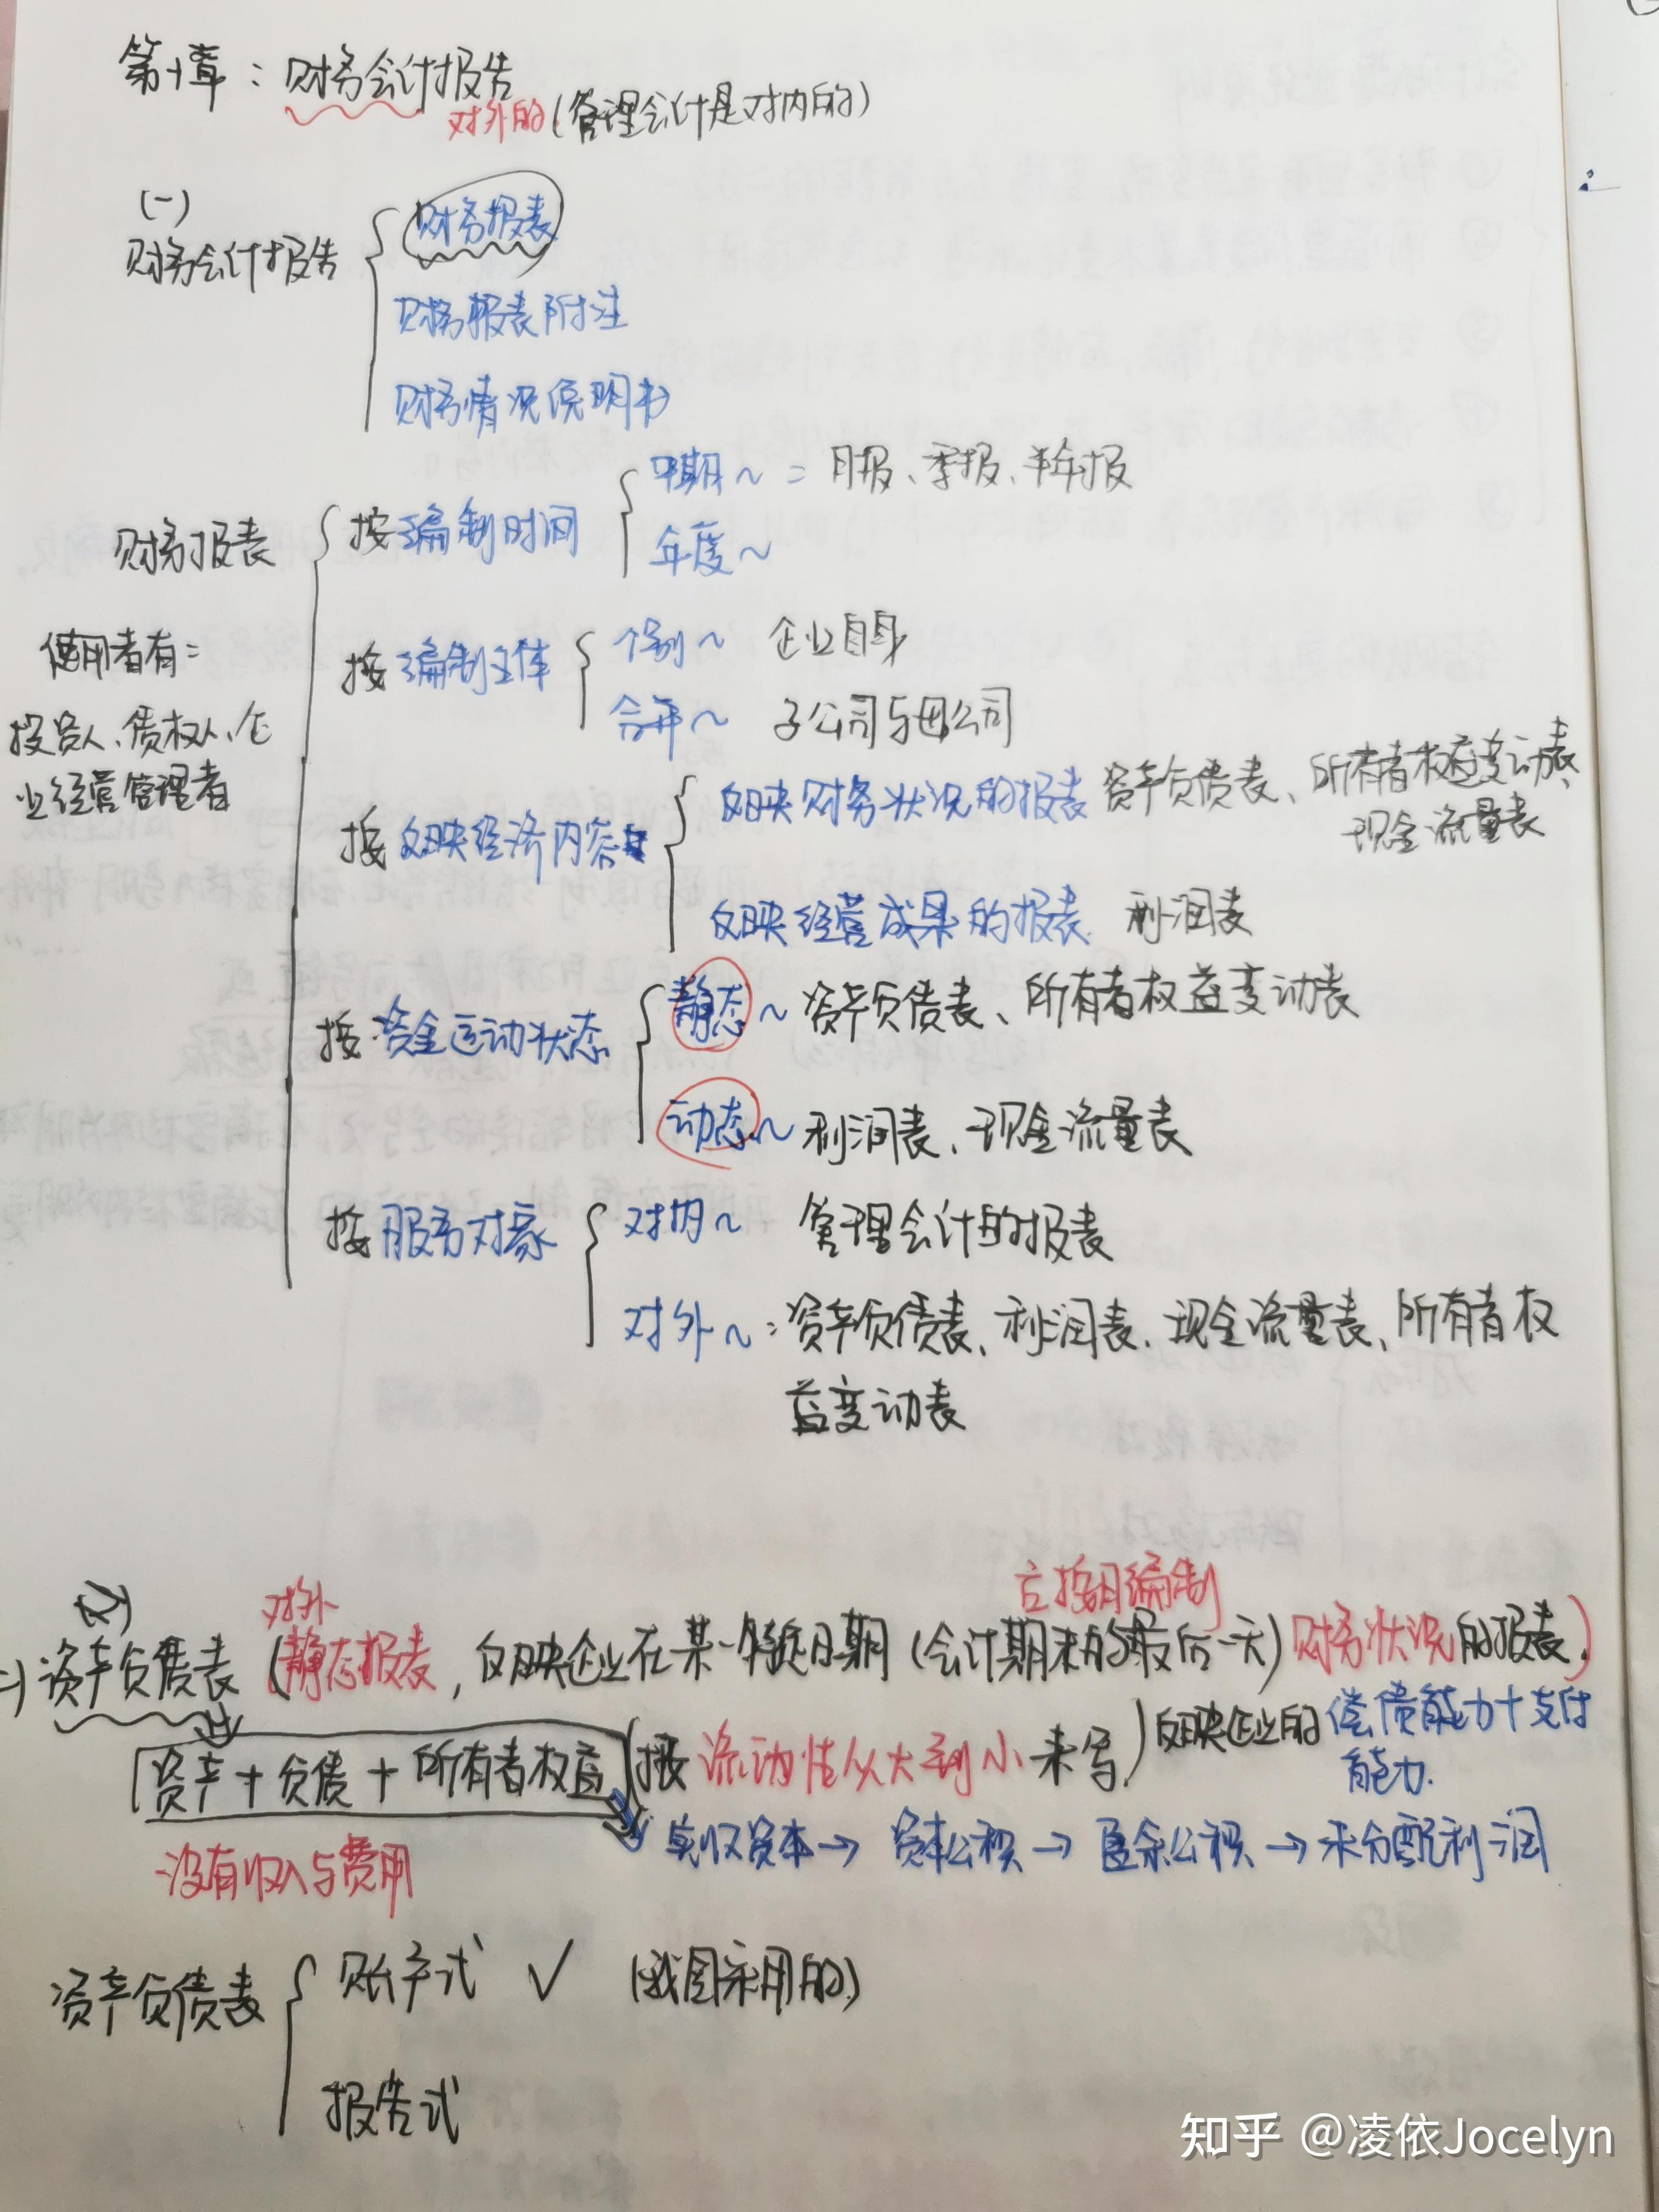 第十章：财务会计报告
对外的（管理会计是对内的）
(一)
财务会计报告
财务报表
财务报表附注
财务情况说明书
财务报表
使用者有：
投资人、债权人、企
业经营管理者
按编制时间
中期～：月报、季报、半年报
年度～
按编制主体
个别～ 企业自身
合并～ 子公司与母公司
按反映经济内容
反映财务状况的报表 资产负债表、所有者权益变动表、
现金流量表
反映经营成果的报表 利润表
按资金运动状态
静态～ 资产负债表、所有者权益变动表
动态～ 利润表、现金流量表
按服务对象
对内～ 管理会计的报表
对外～：资产负债表、利润表、现金流量表、所有者权
益变动表
(二)
对外
应按月编制
资产负债表（静态报表，反映企业在某一特定日期（会计期末的最后一天）财务状况的报表）
资产＋负债＋所有者权益（按流动性从大到小来写）反映企业的偿债能力＋支付
能力.
实收资本→资本公积→盈余公积→未分配利润
没有收入与费用
资产负债表
账户式 ✓ （我国采用的）
报告式
知乎 @凌依Jocelyn